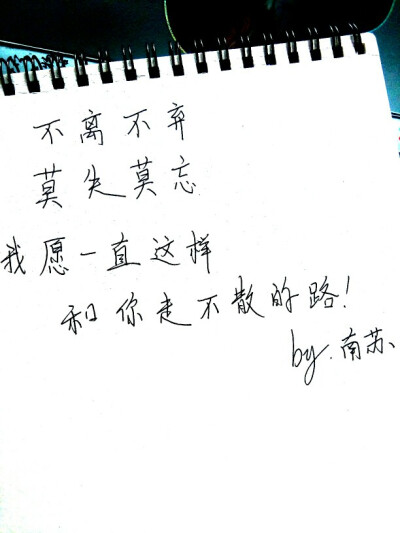 不离不弃
莫失莫忘
我愿一直这样
和你走不散的路!
by.南苏、